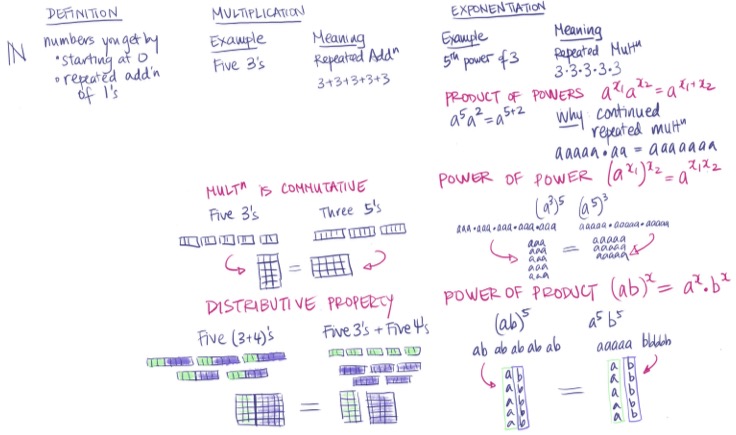 DEFINITION
ℕ
numbers you get by
• starting at 0
• repeated add'n
of 1's
MULTIPLICATION
Example
Five 3's
Meaning
Repeated Addⁿ
3+3+3+3+3
MULTⁿ IS COMMUTATIVE
Five 3's
Three 5's
=
DISTRIBUTIVE PROPERTY
Five (3+4)'s
Five 3's + Five 4's
=
EXPONENTIATION
Example
5th power of 3
Meaning
Repeated Multⁿ
3·3·3·3·3
PRODUCT OF POWERS a^x₁ a^x₂ = a^x₁+x₂
a⁵a² = a⁵⁺²
Why continued
repeated multⁿ
aaaaa • aa = aaaaaaa
POWER OF POWER (a^x₁)^x₂ = a^x₁x₂
(a³)⁵ (a⁵)³
aaa•aaa•aaa•aaa•aaa aaaaa•aaaaa•aaaaa
aaa
aaa
aaa
aaa
aaa
=
aaaaa
aaaaa
aaaaa
POWER OF PRODUCT (ab)^x = a^x • b^x
(ab)⁵
a⁵b⁵
ab ab ab ab ab
aaaaa bbbbb
a b
a b
a b
a b
a b
=
a b
a b
a b
a b
a b